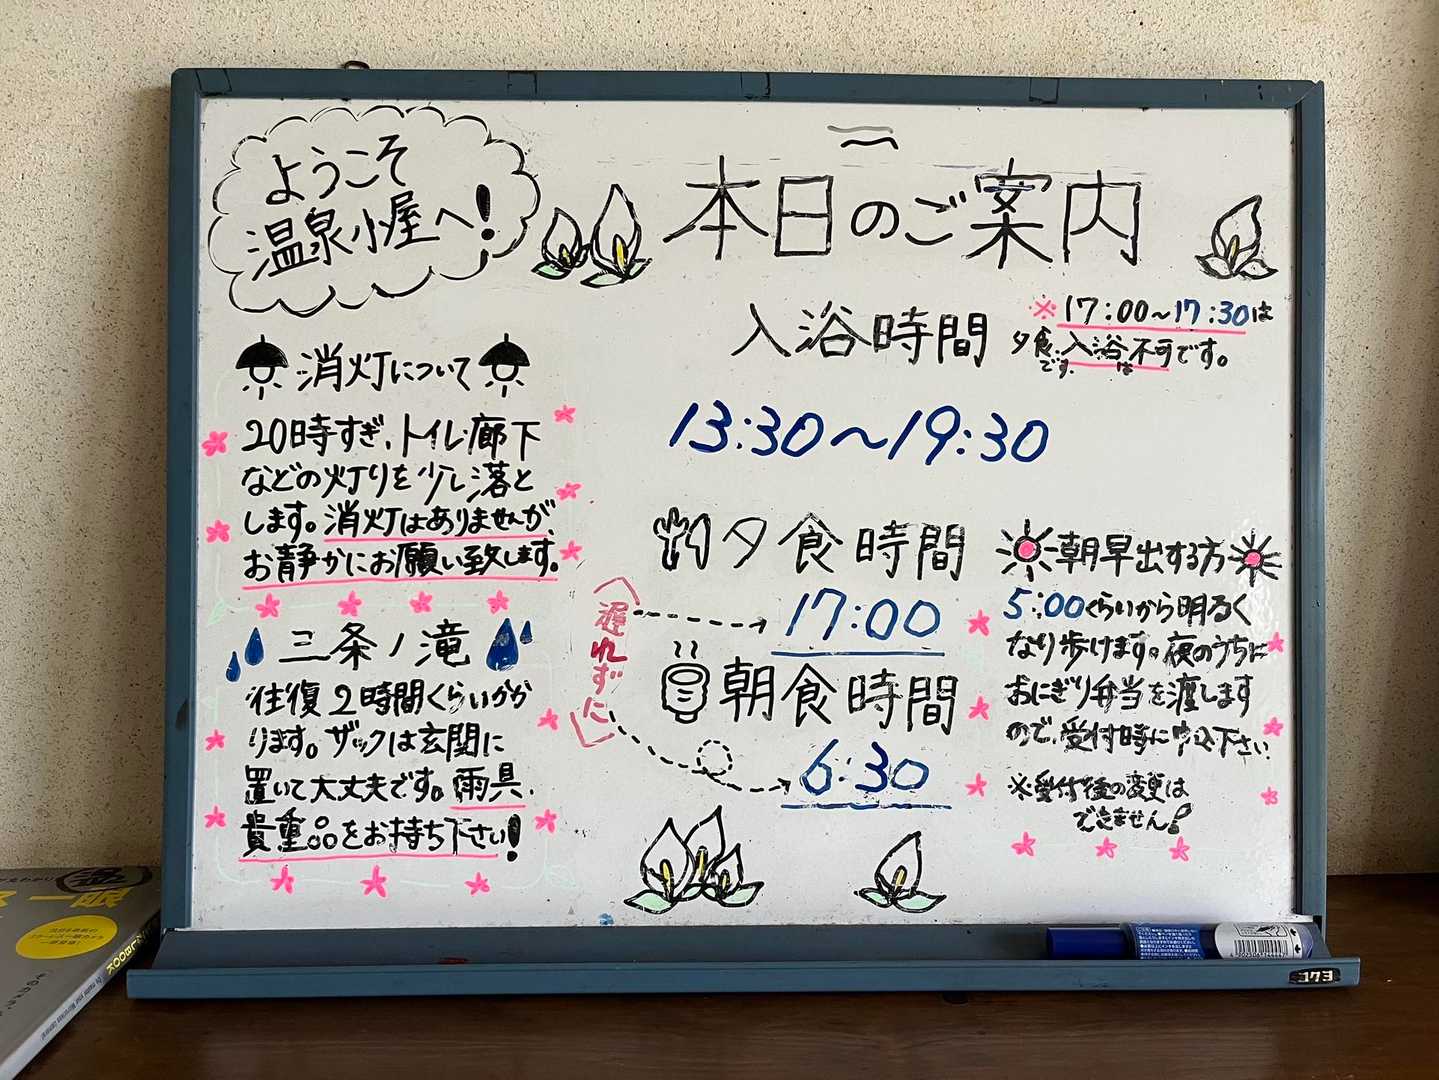 ようこそ
温泉小屋へ!
本日のご案内
消灯について
20時すぎ、トイレ・廊下
などの灯りを少し落と
します。消灯はありませんが、
お静かにお願い致します。
三条ノ滝
往復2時間くらいかか
ります。ザックは玄関に
置いて大丈夫です。雨具、
貴重品をお持ち下さい!
入浴時間
※17:00～17:30は
夕食です。入浴は不可です。
13:30～19:30
夕食時間
17:00
遅れずに
朝食時間
6:30
朝早出する方
5:00くらいから明るく
なり歩けます。夜のうちに
おにぎり弁当を渡します
ので、受付時に申込下さい
※受付後の変更は
できません!
コクヨ